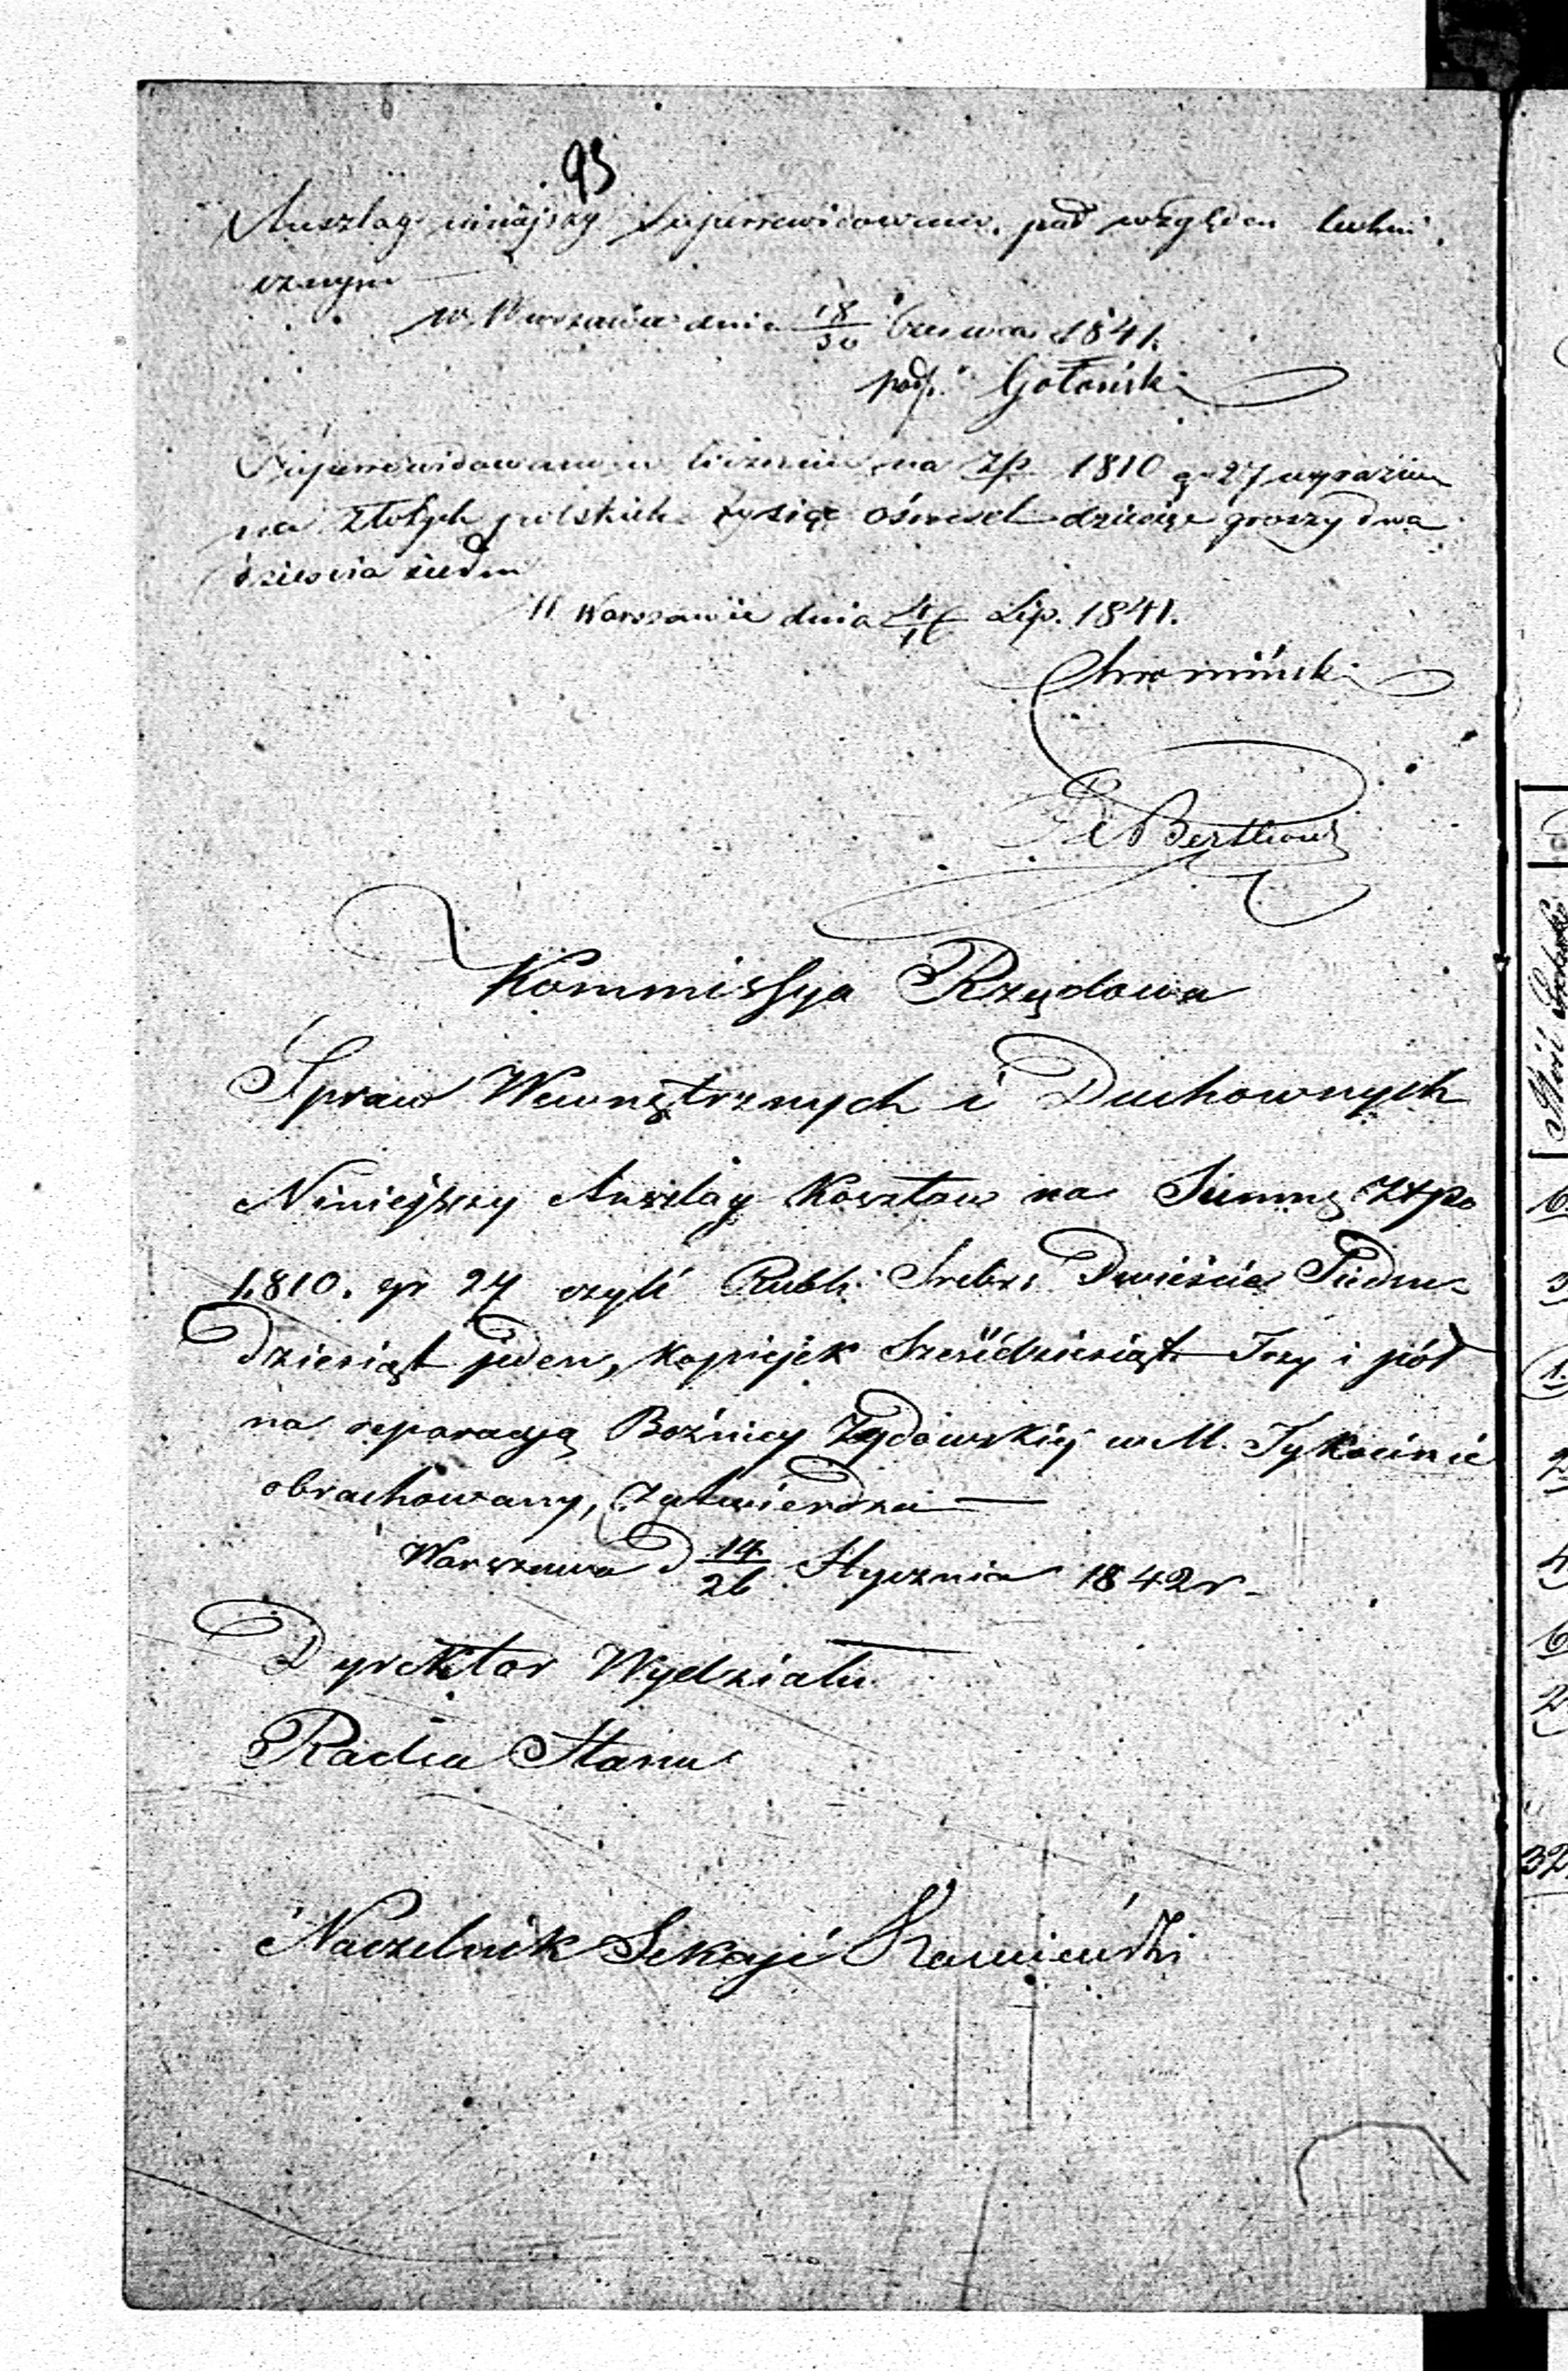 93
Anszlag niniejszy Superrewidowano pod względem techni-
cznym
w Warszawie dnia 18/30 Czerwca 1841.
podp. Gołoński
Superrewidowano w liczeniu na Złp. 1810 gr 27 wyraźnie
na złotych polskich tysiąc ośmset dziesięć groszy dwa
dzieścia siedm
W Warszawie dnia 4/16 Lip. 1841.
Chromiński
Kommissya Rządowa
Spraw Wewnętrznych i Duchownych
Niniejszy Anszlag Kosztow na Summę Złpo
1,810. gr 27 czyli Rubli Srebr: Dwieście Siedm-
Dziesiąt jeden, kopiejek Sześćdziesiąt Trzy i pół
na reparacyą Bożnicy Żydowskiej w M. Tykocinie
obrachowany, zatwierdza —
Warszawa D 14/26 Stycznia 1842 r.
Dyrektor Wydziału
Radca Stanu
Naczelnik Sekcyi Kamieński
32